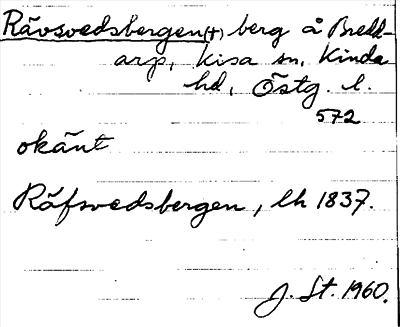 Rävsvedsbergen(†) berg å Bredd-
arp, Kisa sn, Kinda
hd, Östg. l.
572
okänt
Räfsvedsbergen, lh 1837.
J. St. 1960.